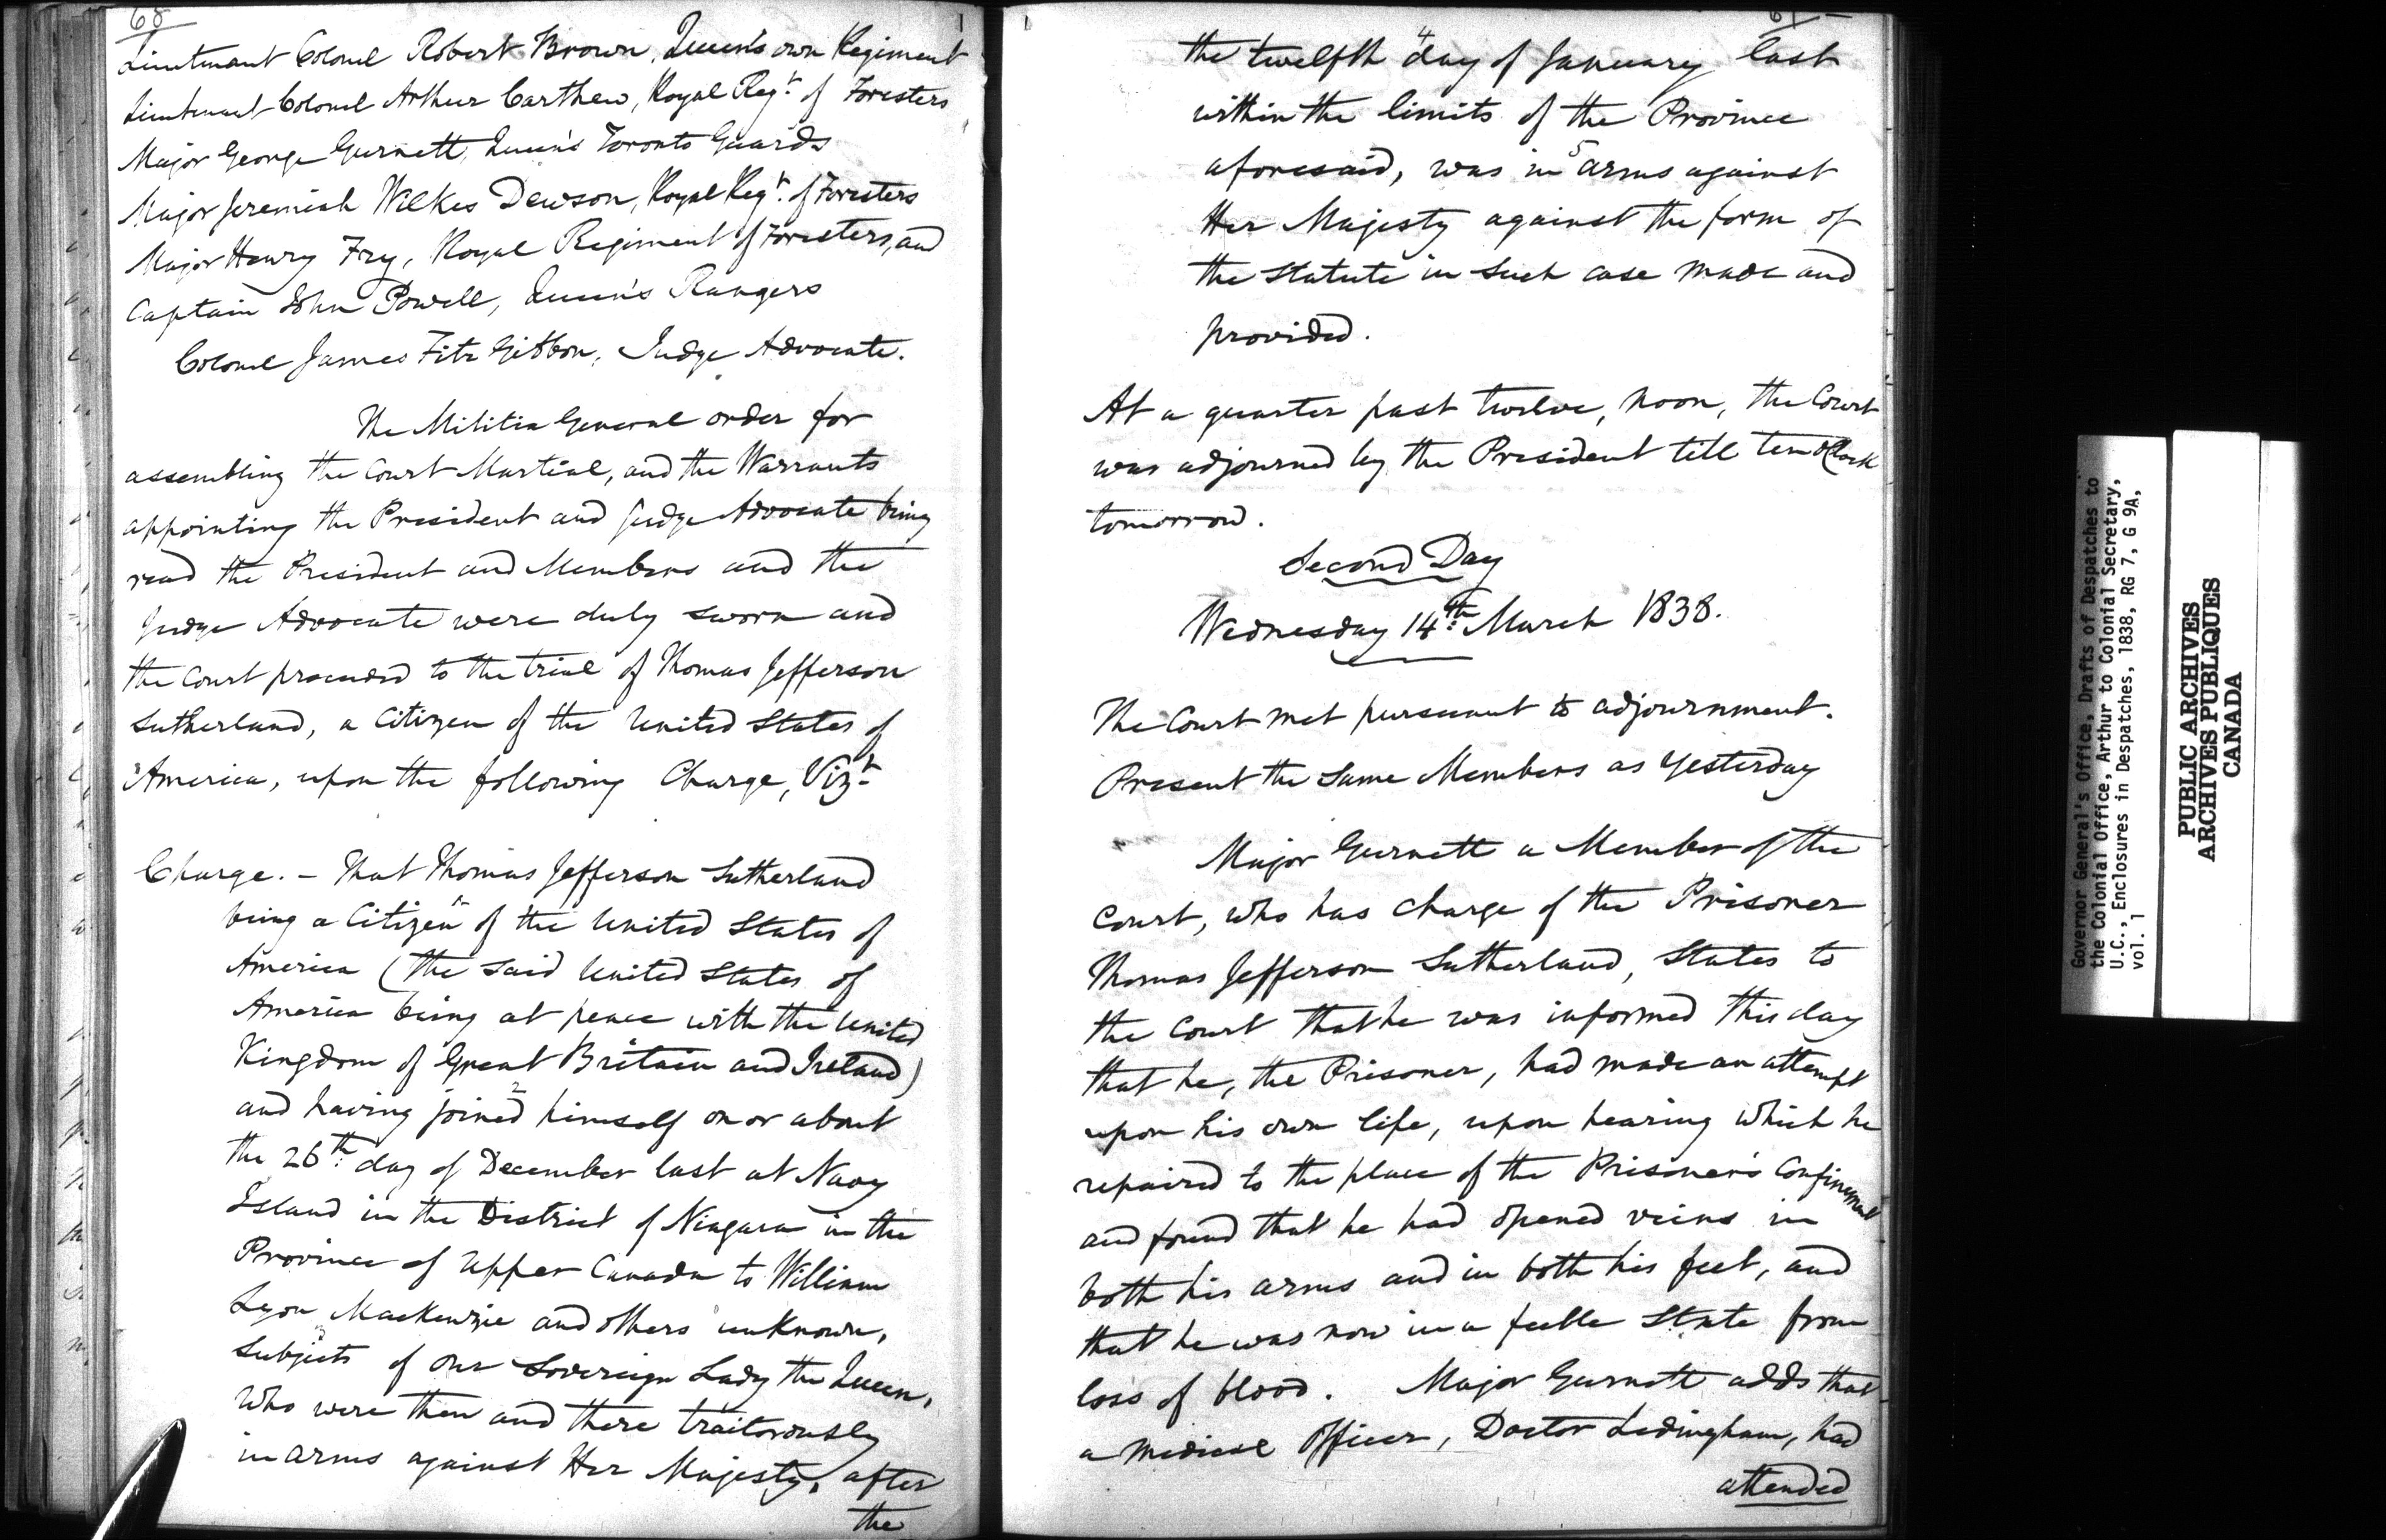 68
Lieutenant Colonel Robert Brown, Queen's own Regiment
Lieutenant Colonel Arthur Carthew, Royal Regt. of Foresters
Major George Gurnett, Queen's Toronto Guards
Major Jeremiah Wilkes Dewson, Royal Regt. of Foresters
Major Henry Fry, Royal Regiment of Foresters, and
Captain John Powell, Queen's Rangers
Colonel James Fitz Gibbon, Judge Advocate.
The Militia General order for
assembling the Court Martial, and the Warrants
appointing the President and Judge Advocate being
read the President and Members and the
Judge Advocate were duly sworn and
the Court proceeded to the trial of Thomas Jefferson
Sutherland, a Citizen of the United States of
America, upon the following Charge, Vizt.
Charge. - That Thomas Jefferson Sutherland
being a Citizen of the United States of
America (the said United States of
America being at peace with the United
Kingdom of Great Britain and Ireland)
and having joined 2 himself on or about
the 26th. day of December last at Navy
Island in the District of Niagara in the
Province of Upper Canada to William
Lyon Mackenzie and others unknown,
Subjects 3 of our Sovereign Lady the Queen,
who were then and there traitorously
in arms against Her Majesty, after
the
the twelfth 4 day of January last
within the limits of the Province
aforesaid, was in 5 arms against
Her Majesty against the form of
the Statute in such case made and
provided.
At a quarter past twelve, noon, the Court
was adjourned by the President till ten oClock
tomorrow.
Second Day
Wednesday 14th. March 1838.
The Court met pursuant to adjournment.
Present the same Members as Yesterday
Major Gurnett a Member of the
Court, who has charge of the Prisoner
Thomas Jefferson Sutherland, States to
the Court that he was informed this day
that he, the Prisoner, had made an attempt
upon his own life, upon hearing which he
repaired to the place of the Prisoner's Confinement
and found that he had opened veins in
both his arms and in both his feet, and
that he was now in a feeble State from
loss of blood. Major Gurnett adds that
a medical Officer, Doctor Ledingham, had
attended
Governor General's Office, Drafts of Despatches to
the Colonial Office, Arthur to Colonial Secretary,
U.C., Enclosures in Despatches, 1838, RG 7, G 9A,
vol. 1
PUBLIC ARCHIVES
ARCHIVES PUBLIQUES
CANADA